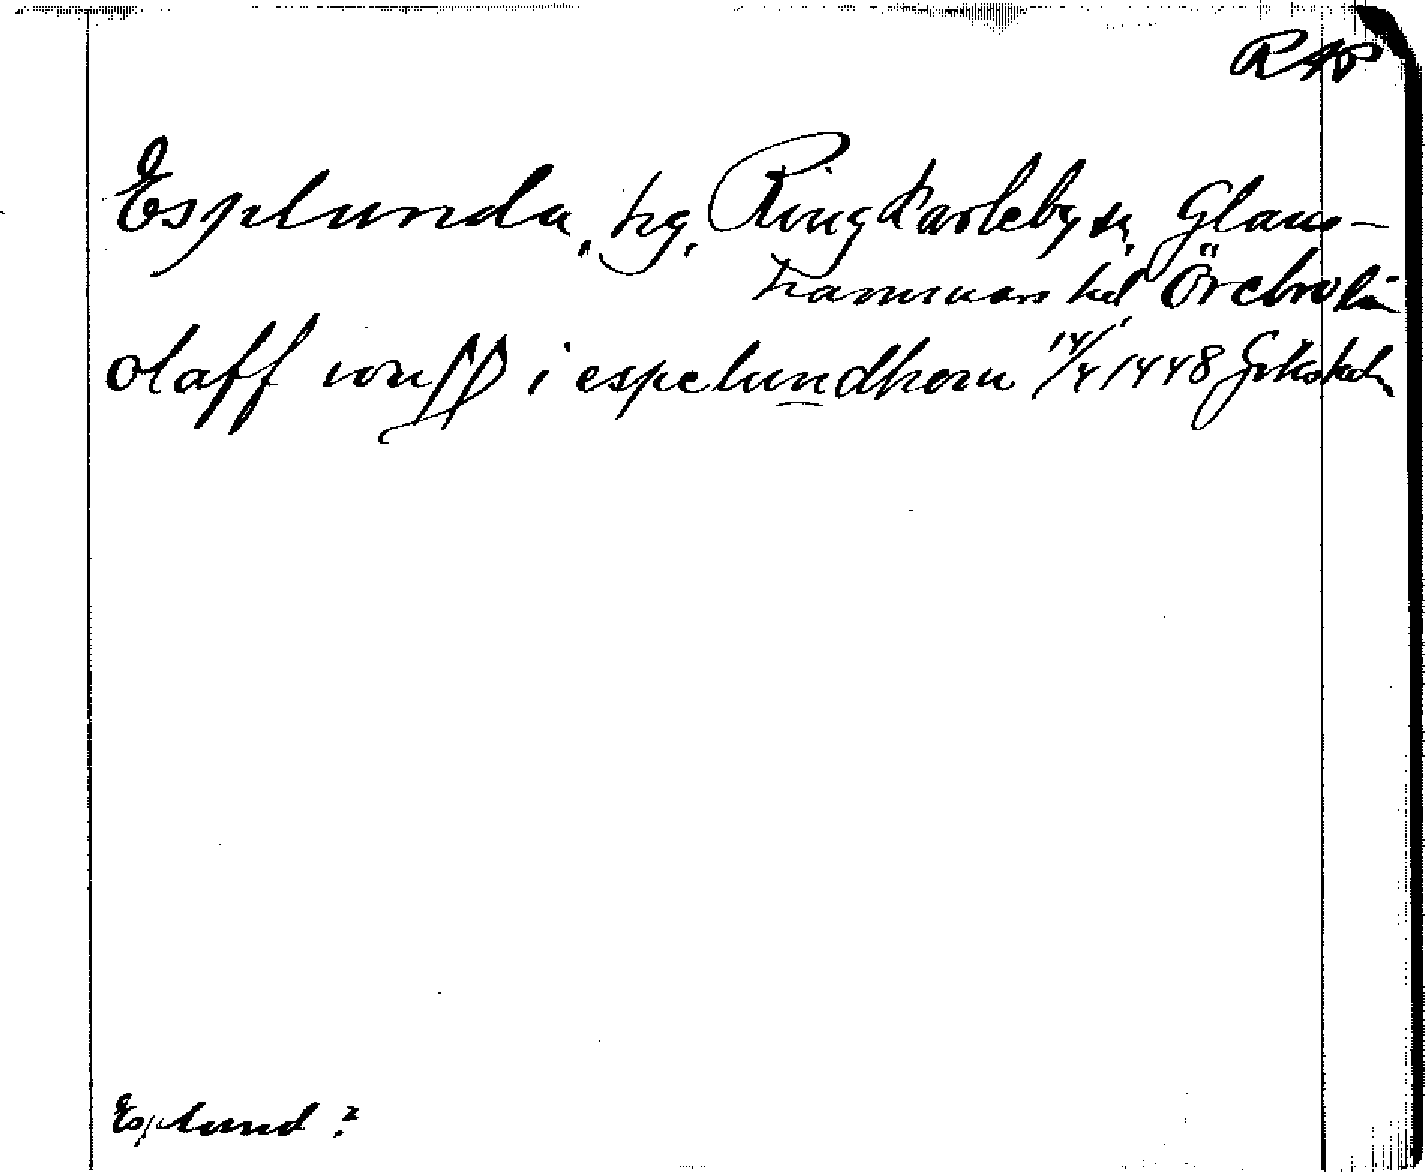 RAP
Esplunda, hg, Ringkarleby sn, Glans-
hammars hd Örebro län
olaff i espelundhom 14/4 1448
Esplund?